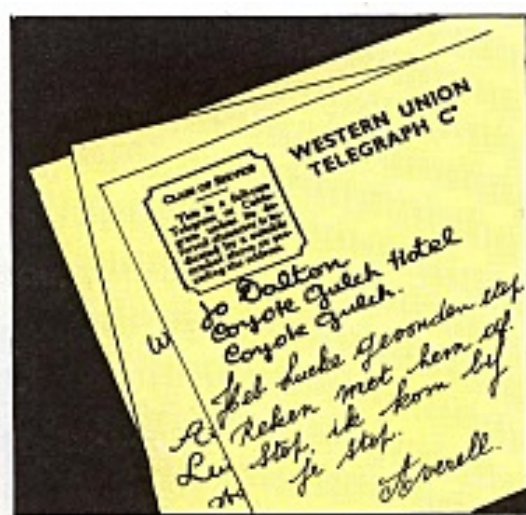 WESTERN UNION
TELEGRAPH Cº
CLASS OF SERVICE
This is a
Telegram or
Jo Dalton
Coyote Gulch Hotel
Coyote Gulch.
Heb Lucke gevonden stop
Reken met hem af.
Stop, ik kom by
je stop.
Averell.
W
A
Lu